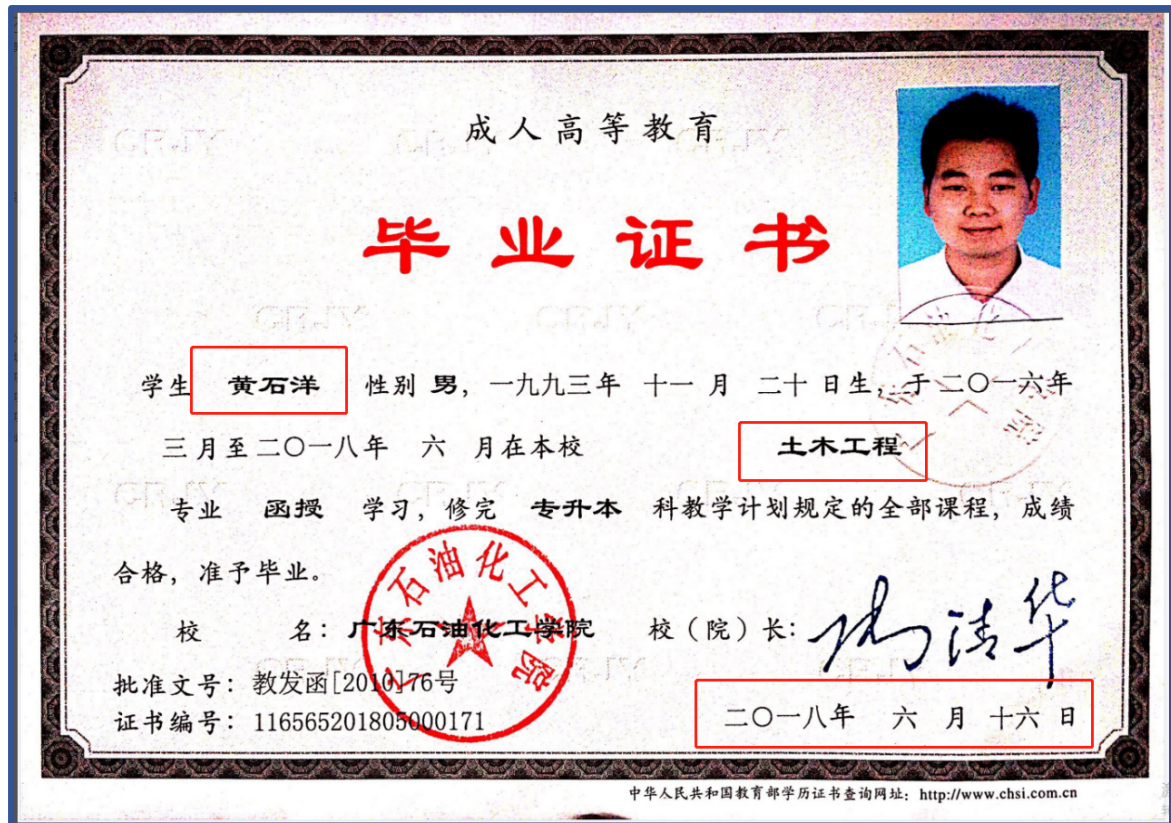 成人高等教育
毕业证书
学生 黄石洋 性别 男，一九九三年 十一 月 二十 日生，于二〇一六年
三月至二〇一八年 六 月在本校 土木工程
专业 函授 学习，修完 专升本 科教学计划规定的全部课程，成绩
合格，准予毕业。
校 名：广东石油化工学院 校（院）长：
批准文号：教发函[2010]76号
证书编号：116565201805000171
二〇一八年 六 月 十六 日
广东石油化工学院
中华人民共和国教育部学历证书查询网址：http://www.chsi.com.cn